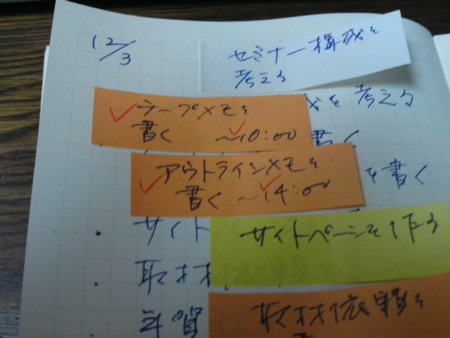 12/3
セミナー構成を
考える
テープメモを
書く ～10:00
を考える
書く
アウトラインメモを
書く ～14:00
を書く
・サイト
サイトページを作る
・取材依頼
・年賀
取材依頼を